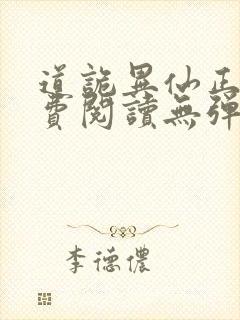 道詭異仙正
費閱讀無彈
李德儂